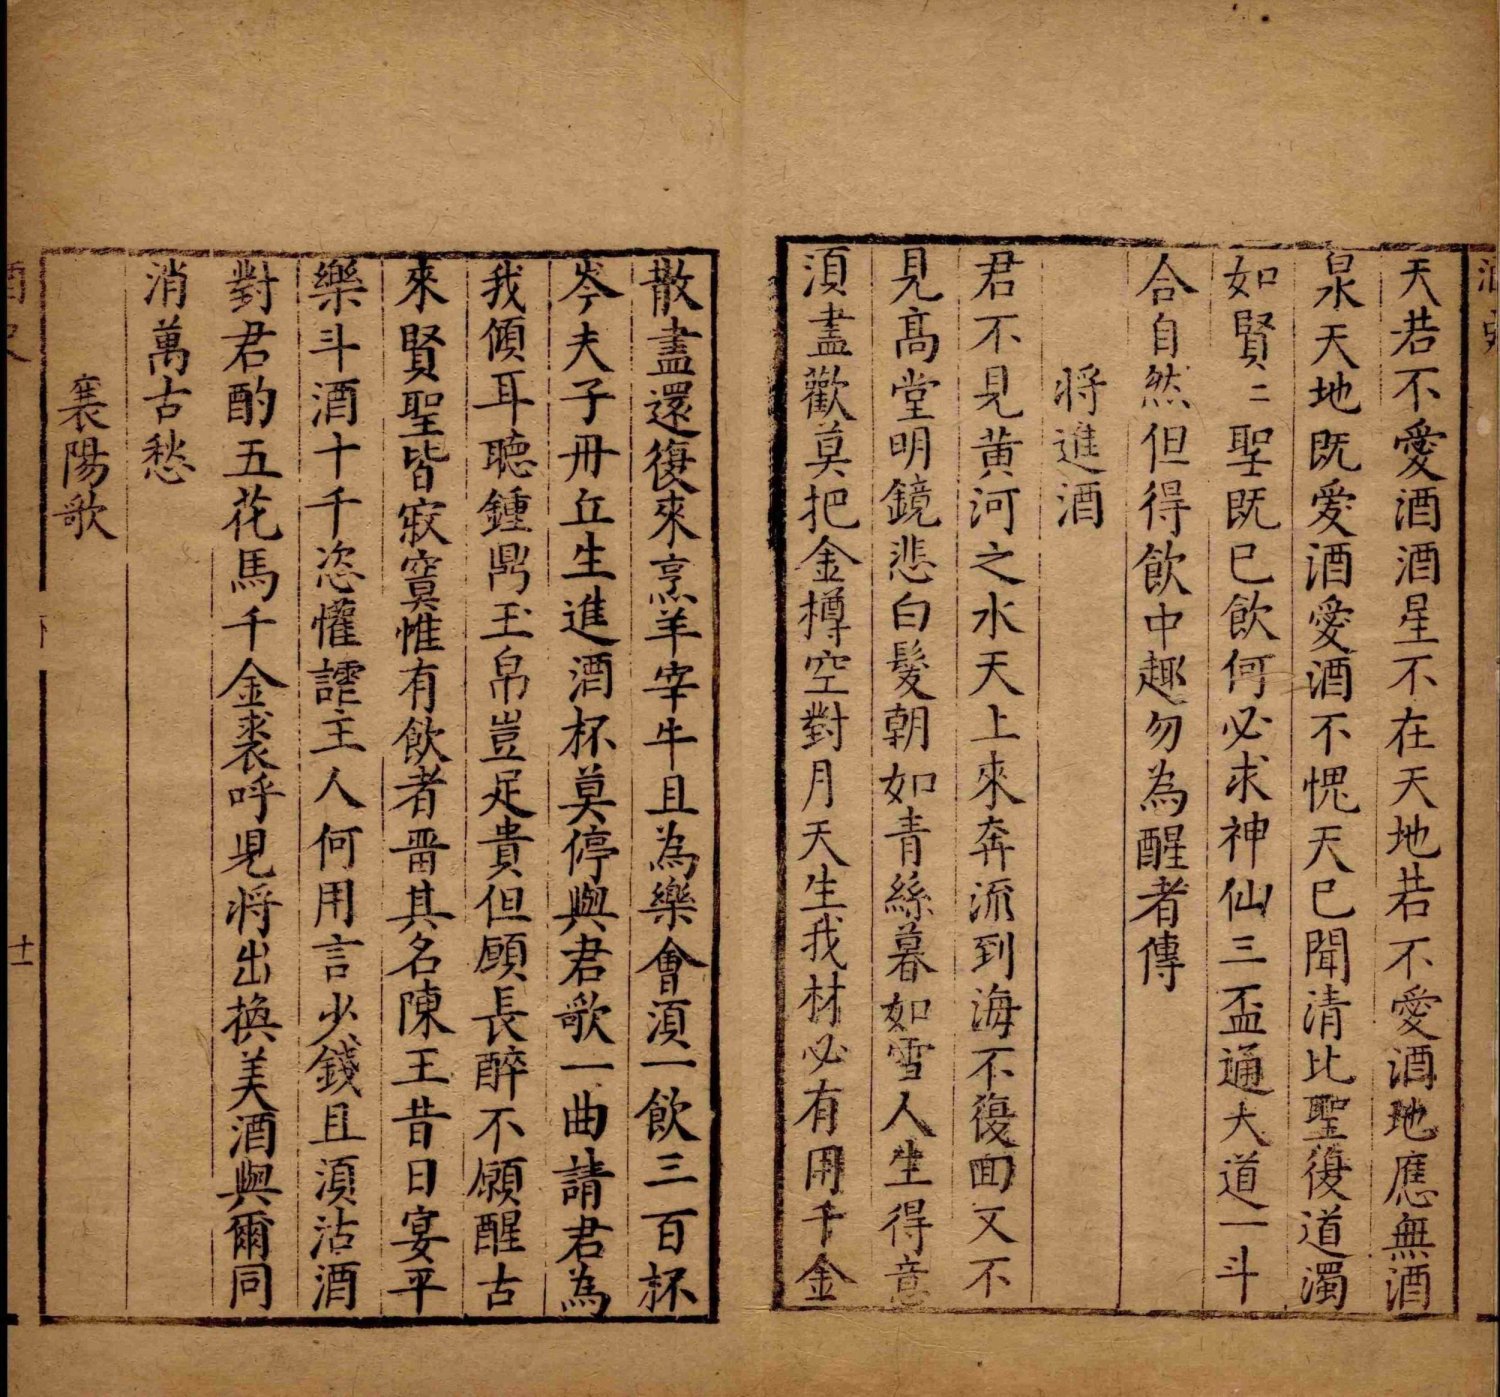 天若不愛酒酒星不在天地若不愛酒地應無酒
泉天地既愛酒愛酒不愧天已聞清比聖復道濁
如賢〻聖既已飲何必求神仙三盃通大道一斗
合自然但得飲中趣勿為醒者傳
將進酒
君不見黃河之水天上來奔流到海不復面又不
見髙堂明鏡悲白髮朝如青絲暮如雪人生得意
湏盡歡莫把金樽空對月天生我材必有用千金
散盡還復來烹羊宰牛且為樂會湏一飲三百杯
岑夫子丹丘生進酒杯莫停與君歌一曲請君為
我傾耳聽鍾鼎玉帛豈足貴但願長醉不願醒古
來賢聖皆寂寞惟有飲者畱其名陳王昔日宴平
樂斗酒十千恣懽謔主人何用言少錢且湏沽酒
對君酌五花馬千金裘呼兒將出換美酒與爾同
消萬古愁
襄陽歌
下
十一